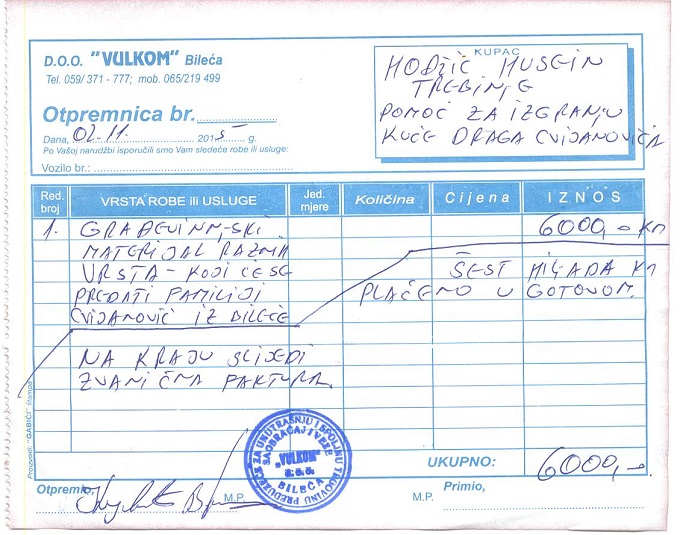 D.O.O. "VULKOM" Bileća
Tel. 059/ 371 - 777; mob. 065/219 499
Otpremnica br.
Dana, 02.11. 2015 g.
Po Vašoj narudžbi isporučili smo Vam sledeće robe ili usluge:
Vozilo br.:
KUPAC
HODŽIĆ HUSEIN
TREBINJE
POMOĆ ZA IZGRANJU
KUĆE DRAGA CVIJANOVIĆA
Red. broj VRSTA ROBE ili USLUGE Jed. mjere Količina Cijena IZNOS
1. GRAĐEVINN,SKI 6000,- KM
MATERIJAL RAZNA
VRSTA - KOJI ĆE SE ŠEST HILJADA KM
PREDATI FAMILIJI PLAĆENO U GOTOVOM.
CVIJANOVIĆ IZ BILEĆE
NA KRAJU SLIJEDI
ZVANIČNA FAKTURA.
UKUPNO: 6000,-.
Otpremio, M.P. M.P. Primio,
PREDUZEĆE ZA UNUTRAŠNJU I SPOLJNU TRGOVINU
SAOBRAĆAJ I VEZE
"VULKOM"
D.O.O.
BILEĆA
Proizvodi: "GABIĆI" štampa